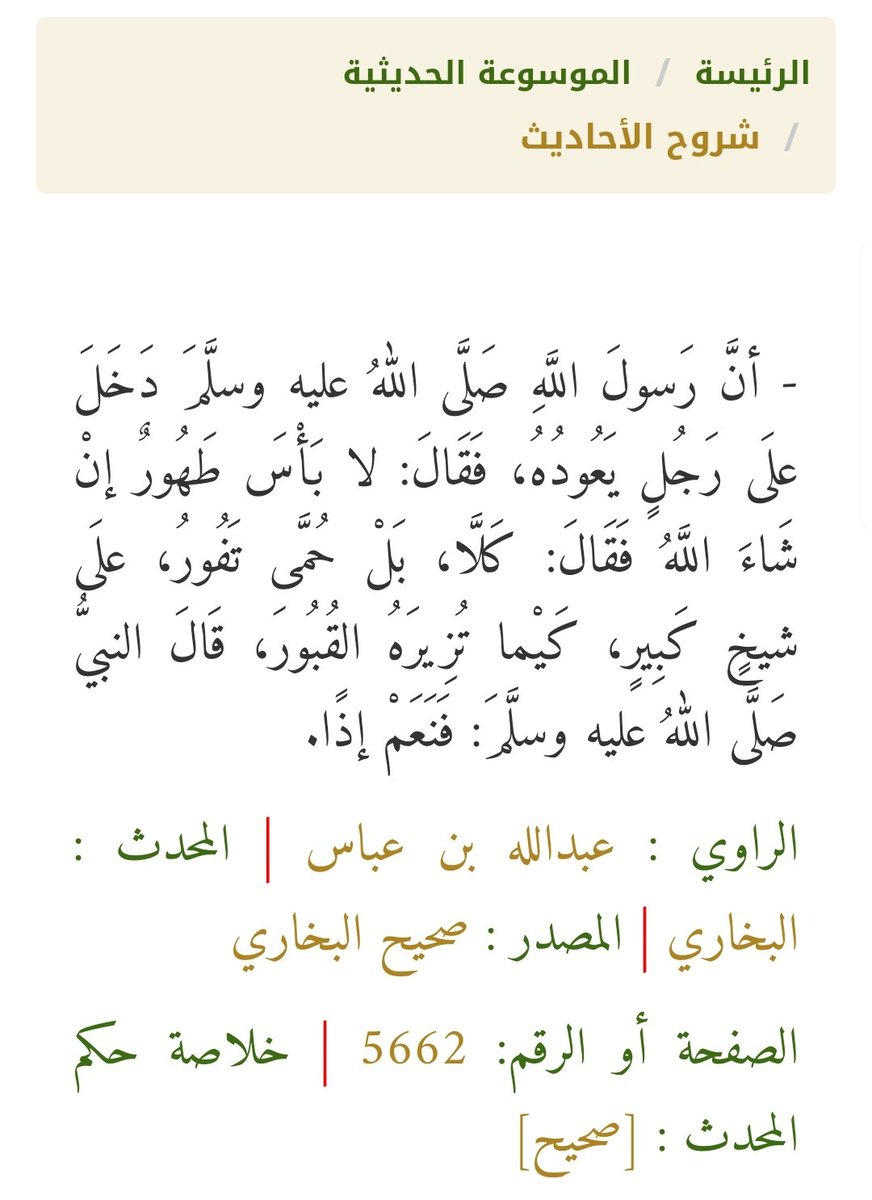 الرئيسة / الموسوعة الحديثية
/ شروح الأحاديث
- أنَّ رَسولَ اللَّهِ صَلَّى اللهُ عليه وسلَّمَ دَخَلَ
علَى رَجُلٍ يَعُودُهُ، فَقَالَ: لا بَأْسَ طَهُورٌ إنْ
شَاءَ اللَّهُ فَقَالَ: كَلَّا، بَلْ حُمَّى تَفُورُ، علَى
شيخٍ كَبِيرٍ، كَيْما تُزِيرَهُ القُبُورَ، قَالَ النبيُّ
صَلَّى اللهُ عليه وسلَّمَ: فَنَعَمْ إذًا.
الراوي : عبدالله بن عباس | المحدث :
البخاري | المصدر : صحيح البخاري
الصفحة أو الرقم: 5662 | خلاصة حكم
المحدث : [صحيح]